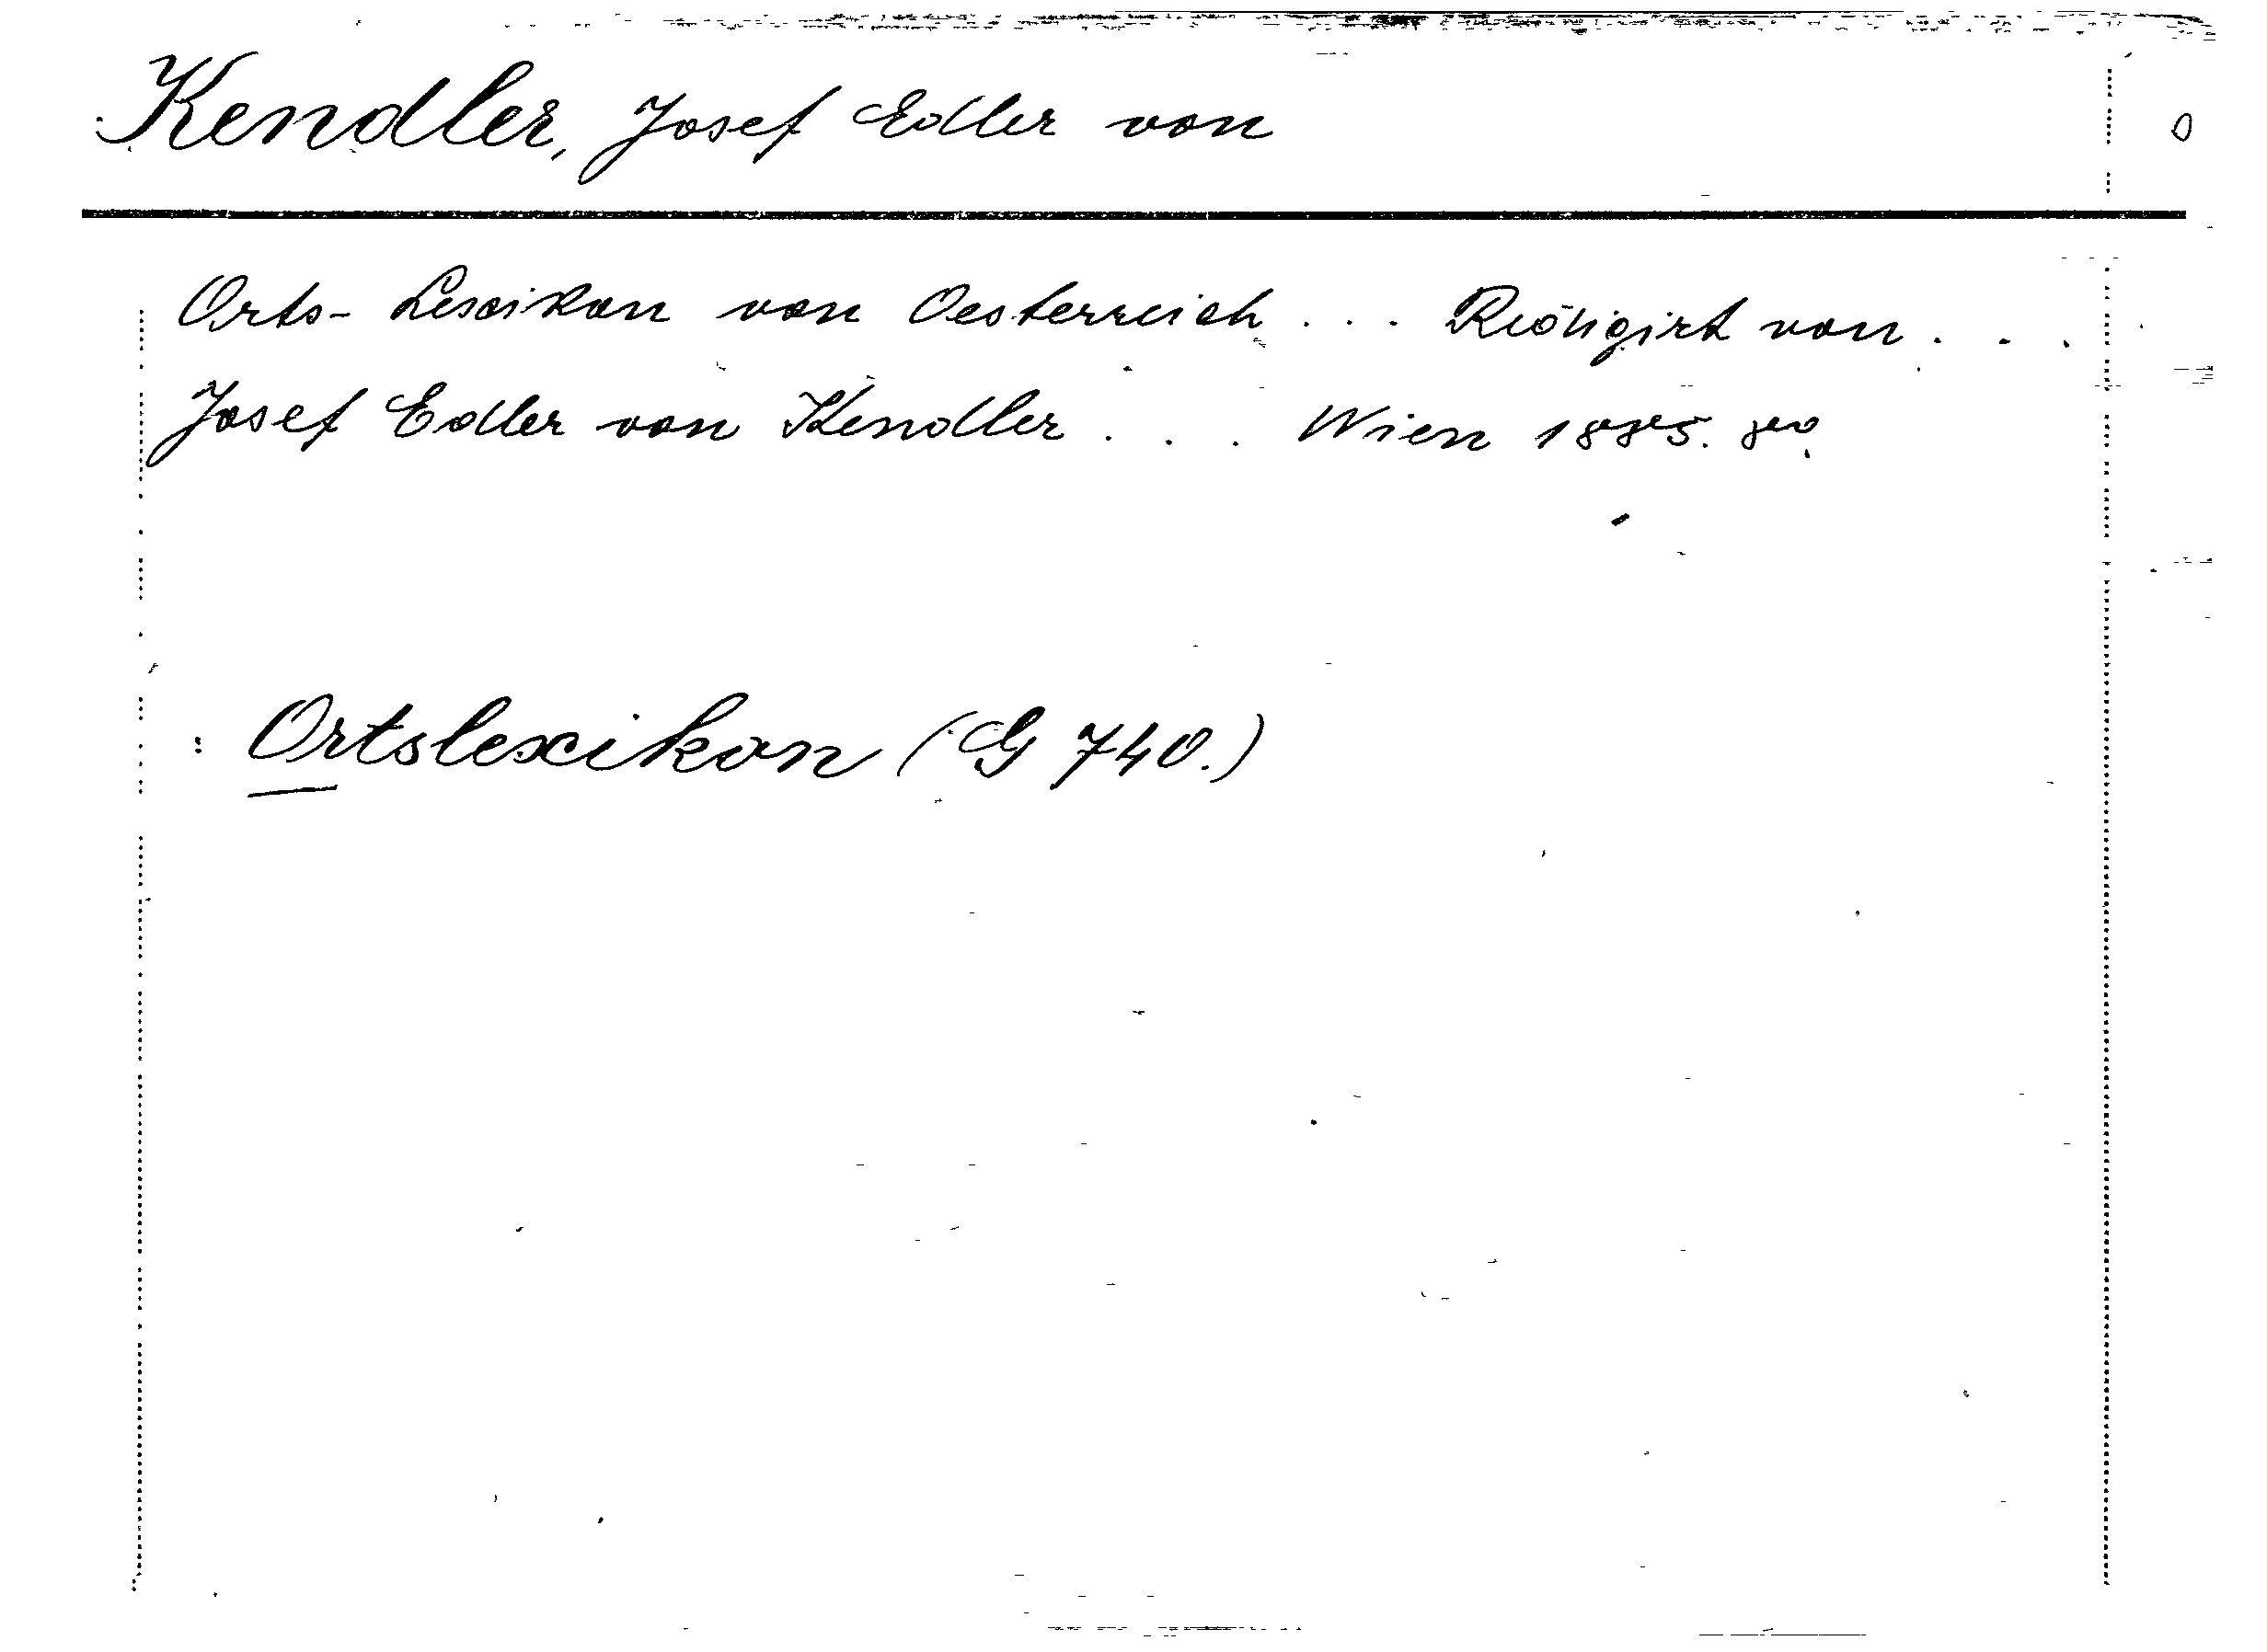 Kendler, Josef Edler von 0
Orts-Lexikon von Oesterreich . . . Redigirt von . . .
Josef Edler von Kendler . . . Wien 1885. 8vo.
: Ortslexikon (G 740.)